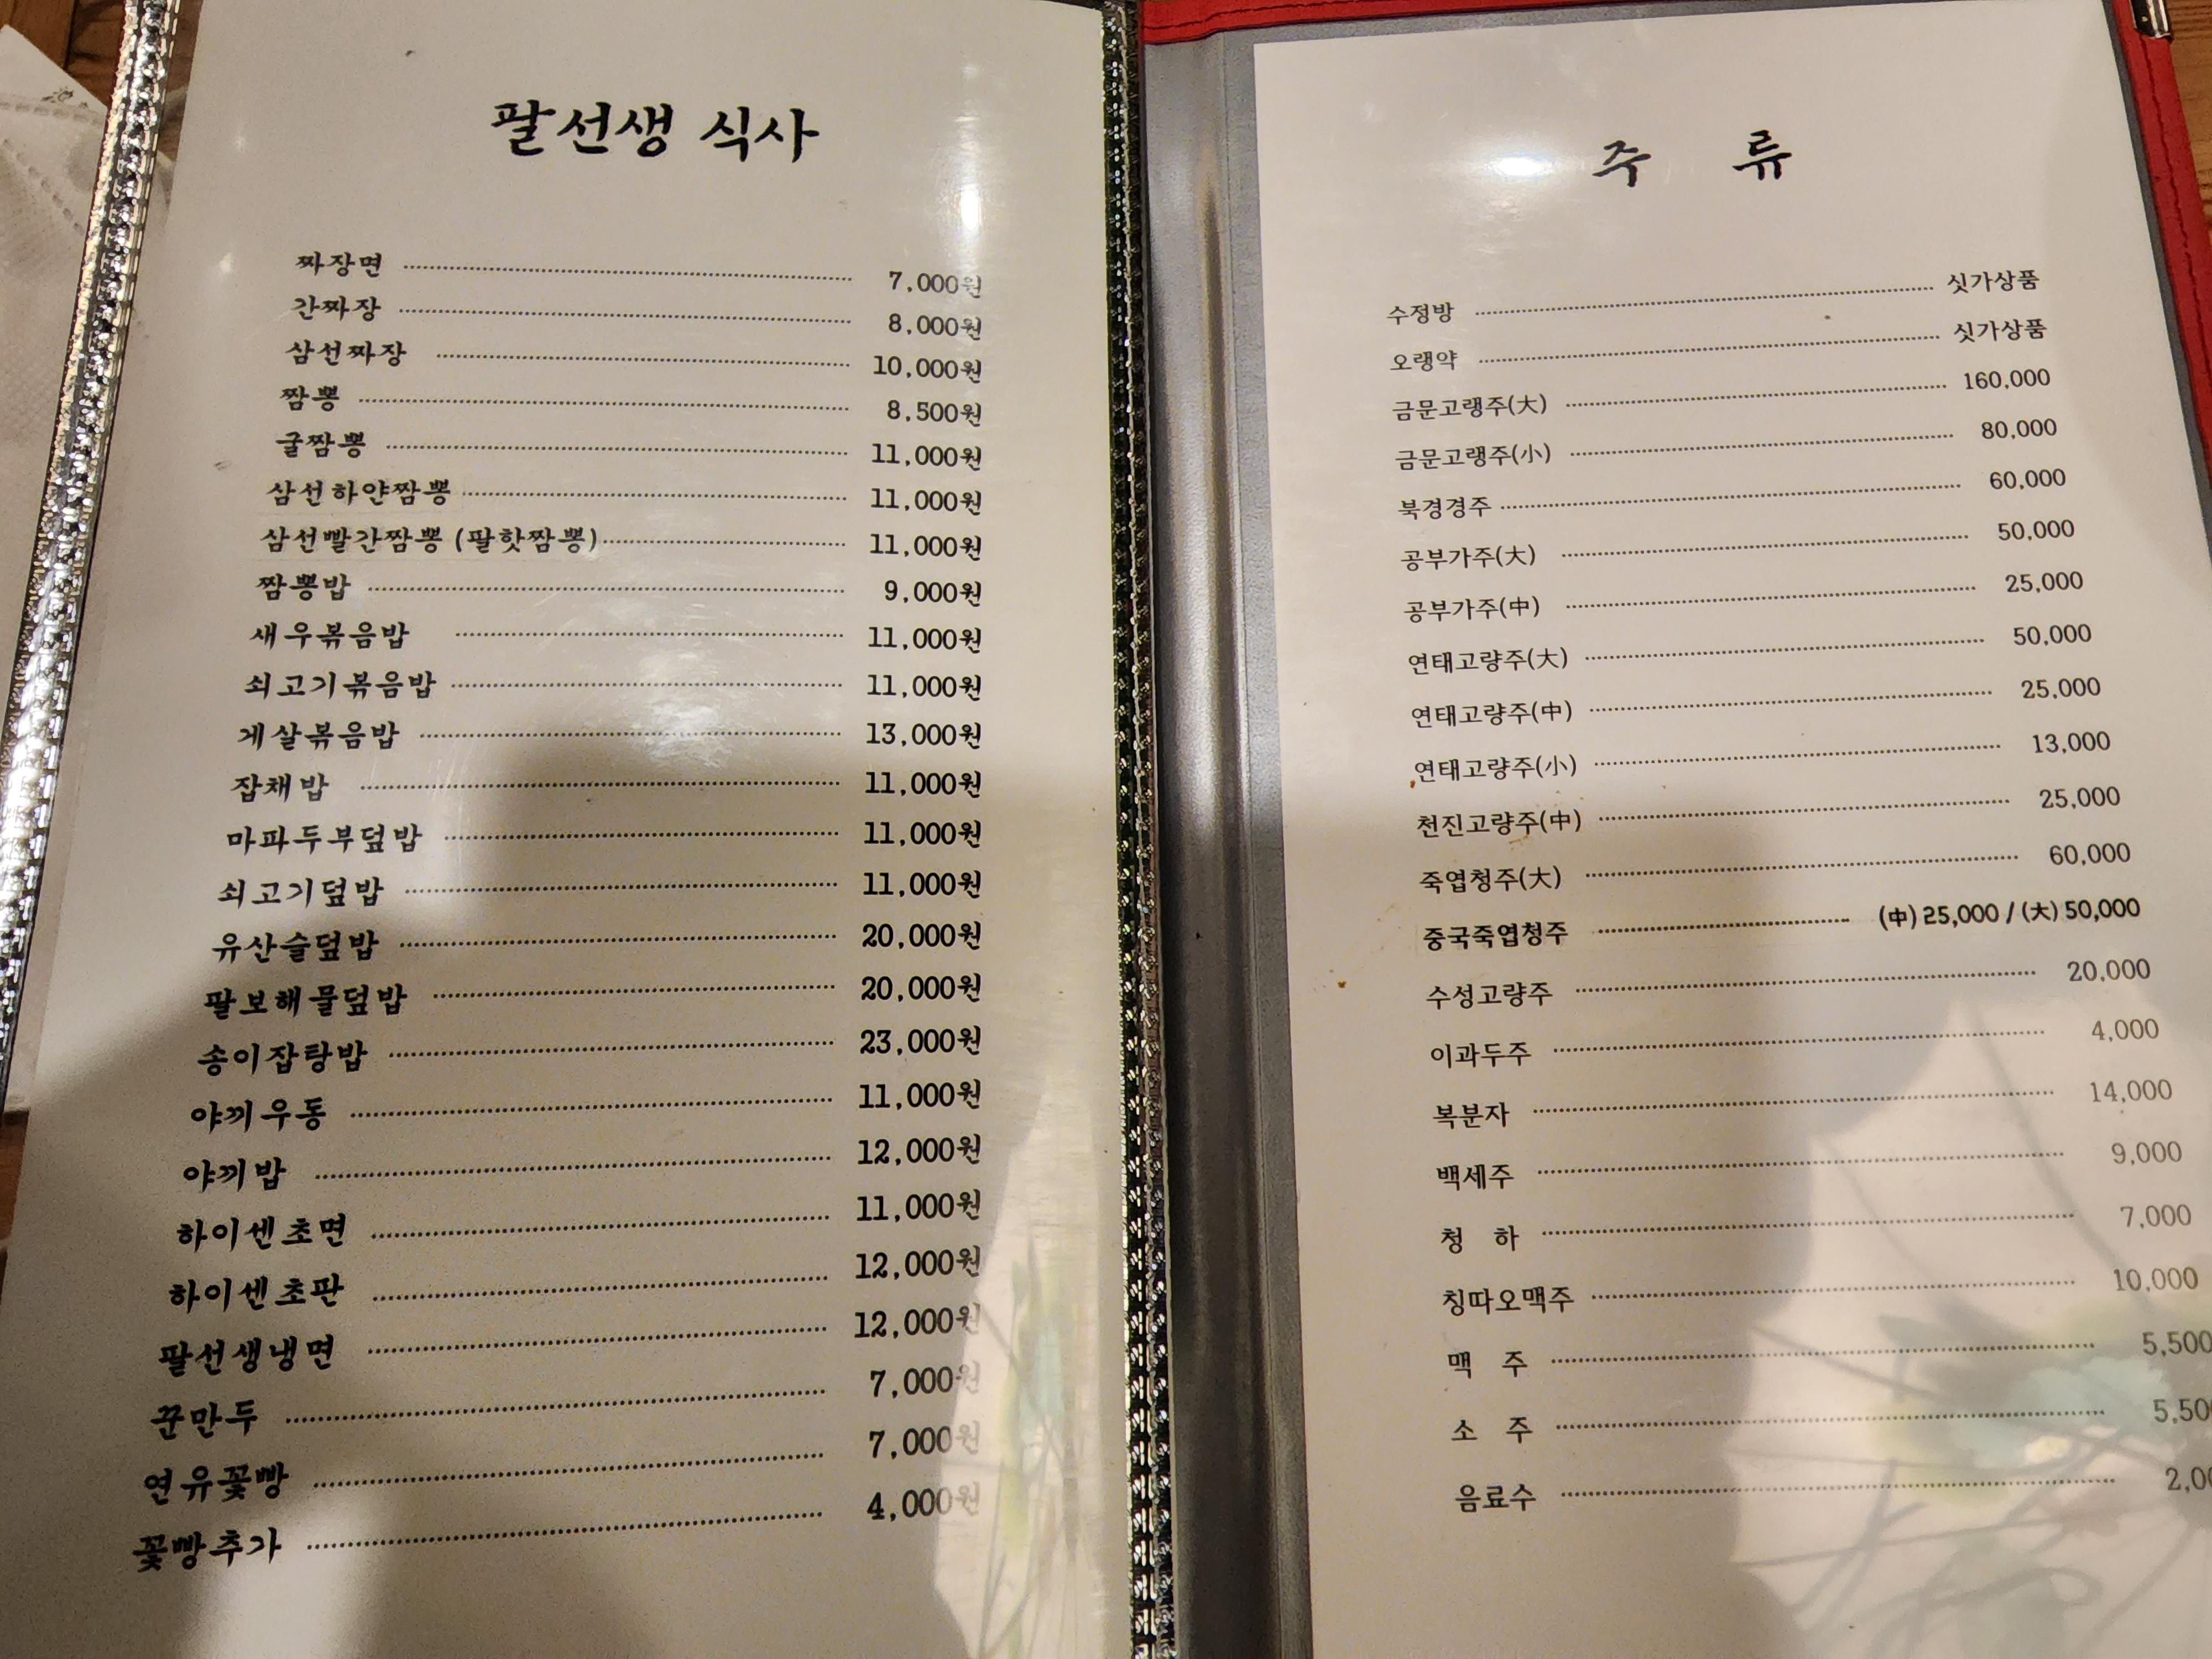 팔선생 식사
짜장면 7,000원
간짜장 8,000원
삼선짜장 10,000원
짬뽕 8,500원
굴짬뽕 11,000원
삼선하얀짬뽕 11,000원
삼선빨간짬뽕 (팔핫짬뽕) 11,000원
짬뽕밥 9,000원
새우볶음밥 11,000원
쇠고기볶음밥 11,000원
게살볶음밥 13,000원
잡채밥 11,000원
마파두부덮밥 11,000원
쇠고기덮밥 11,000원
유산슬덮밥 20,000원
팔보해물덮밥 20,000원
송이잡탕밥 23,000원
야끼우동 11,000원
야끼밥 12,000원
하이센초면 11,000원
하이센초판 12,000원
팔선생냉면 12,000원
꾼만두 7,000원
연유꽃빵 7,000원
꽃빵추가 4,000원
주 류
수정방 싯가상품
오랭약 싯가상품
금문고랭주(大) 160,000
금문고랭주(小) 80,000
북경경주 60,000
공부가주(大) 50,000
공부가주(中) 25,000
연태고량주(大) 50,000
연태고량주(中) 25,000
연태고량주(小) 13,000
천진고량주(中) 25,000
죽엽청주(大) 60,000
중국죽엽청주 (中) 25,000 / (大) 50,000
수성고량주 20,000
이과두주 4,000
복분자 14,000
백세주 9,000
청 하 7,000
칭따오맥주 10,000
맥 주 5,500
소 주 5,50
음료수 2,00